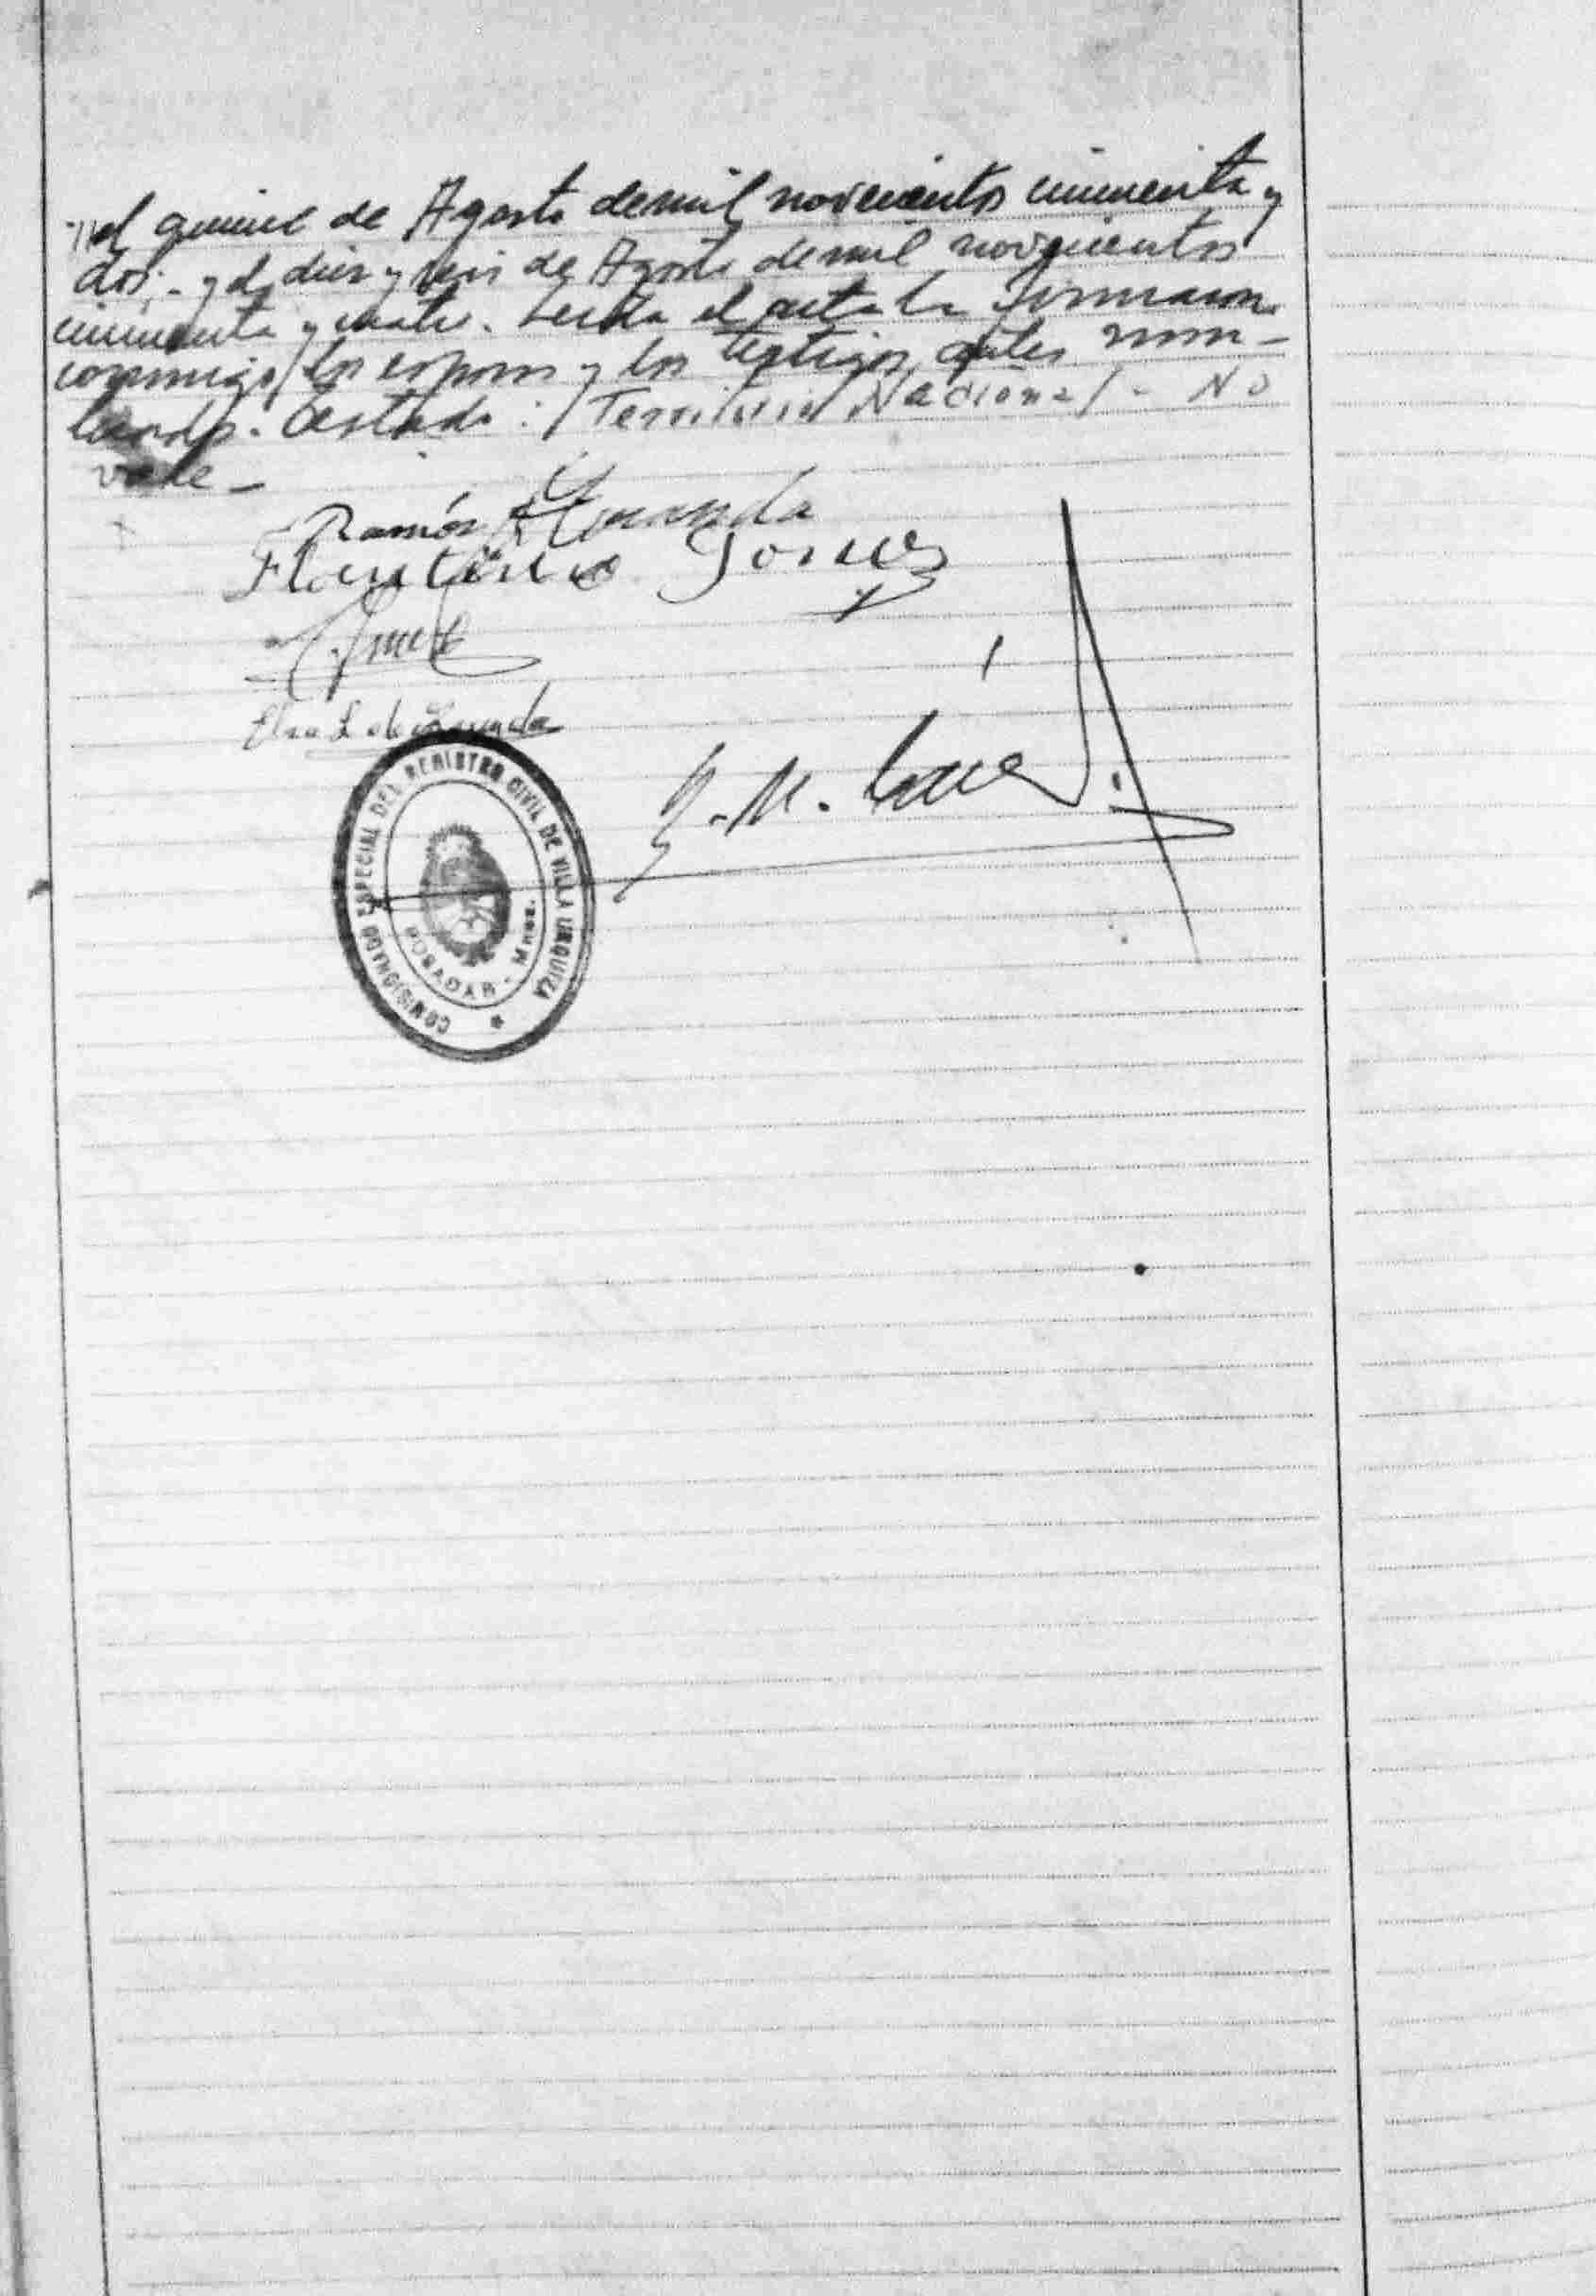 el quince de Agosto de mil novecientos cincuenta y
dos; - y el diez y seis de Agosto de mil novecientos
cincuenta y cuatro. Leida el acta la firmaron
conmigo, los esposos y los testigos antes nom-
brados. Testado: / Territorio Nacional - No
vale -
Ramón Miranda
Florentino
Elsa L. de
G. M.
COMISIONADO ESPECIAL DEL REGISTRO CIVIL DE VILLA URQUIZA
POSADAS - Mnes.